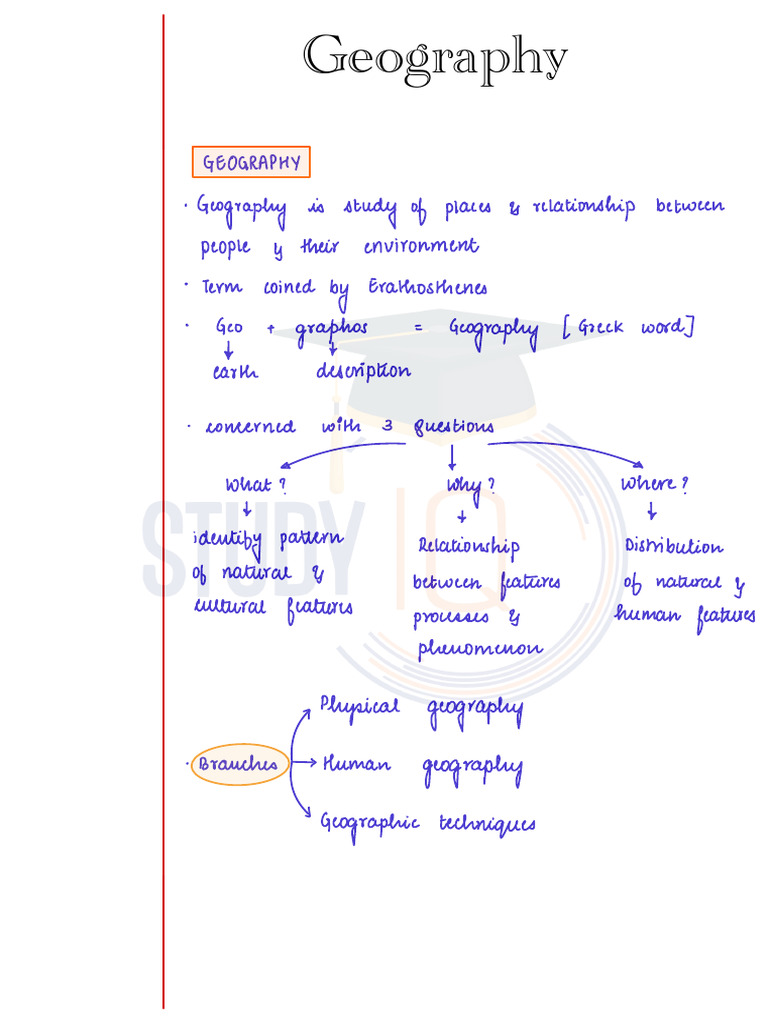 Geography
GEOGRAPHY
· Geography is study of places & relationship between
people & their environment
· Term coined by Erathosthenes
· Geo + graphos = Geography [Greek word]
↓ ↓
earth description
· concerned with 3 questions
What? Why? Where?
↓ ↓ ↓
identify pattern
of natural &
cultural features
Relationship
between features
processes &
phenomenon
Distribution
of natural &
human features
STUDY IQ
Physical geography
· Branches → Human geography
Geographic techniques